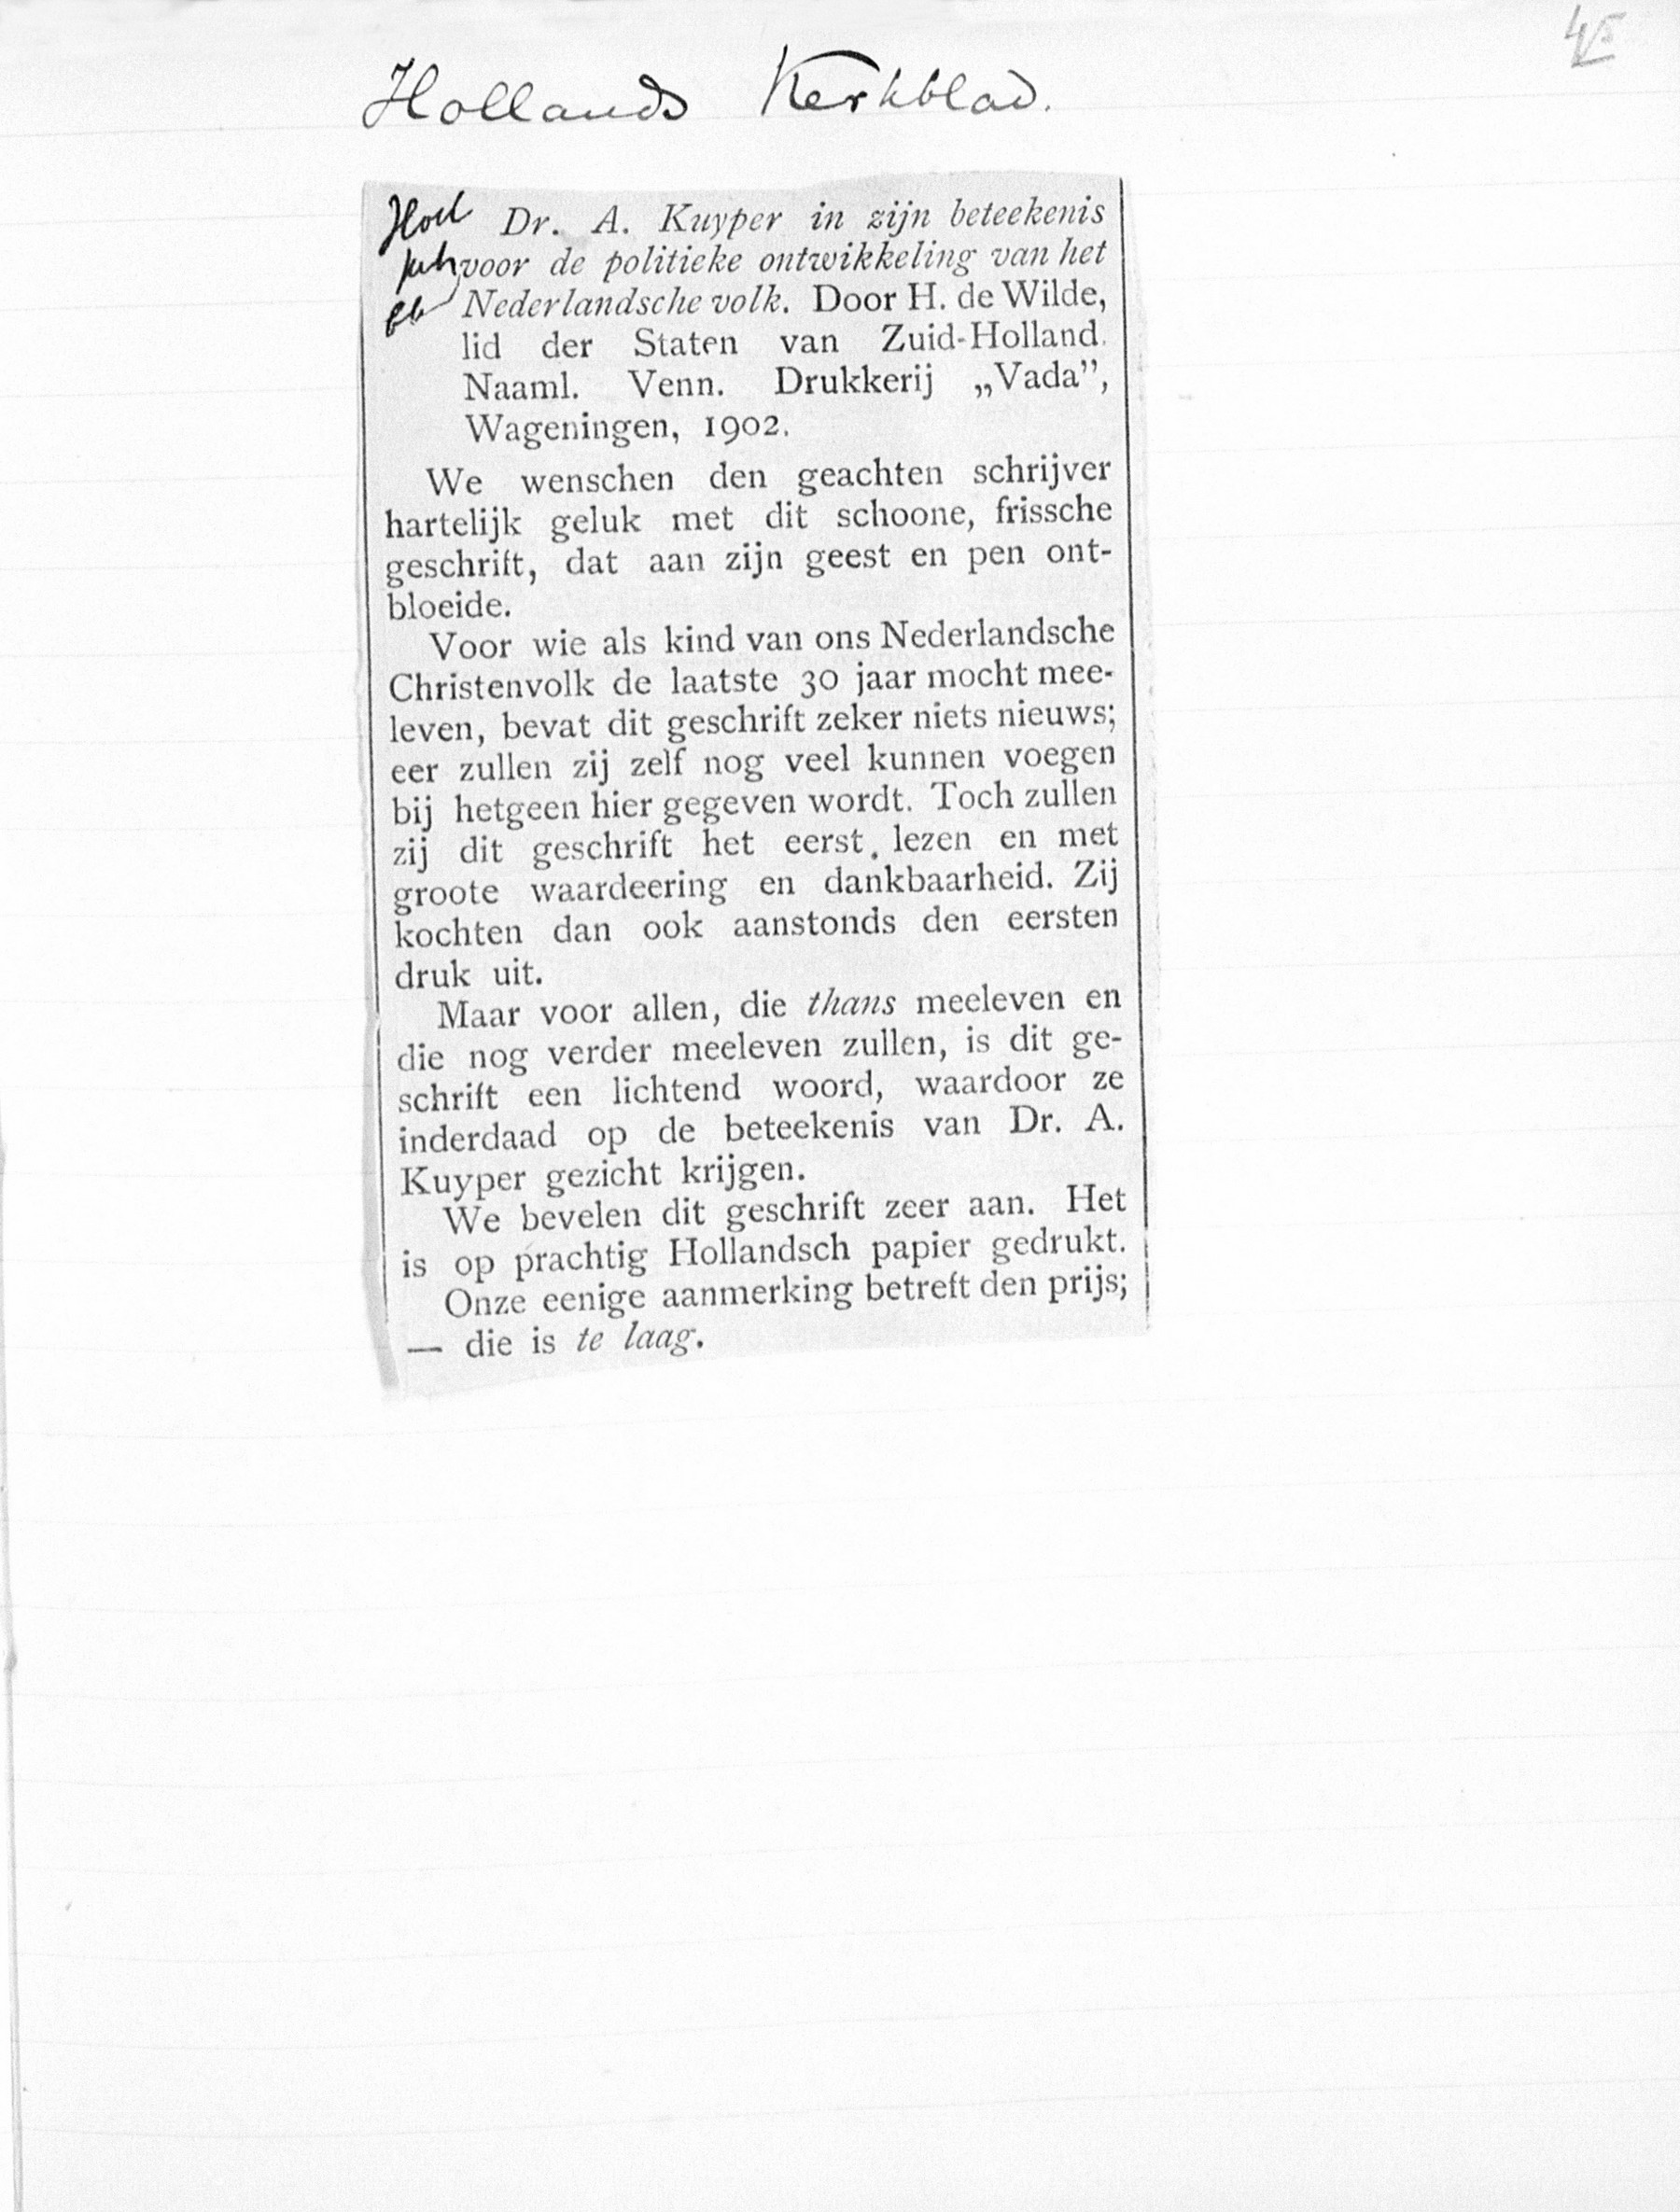 45
Hollands Kerkblad.
Holl
Dr. A. Kuyper in zijn beteekenis
voor de politieke ontwikkeling van het
Nederlandsche volk. Door H. de Wilde,
lid der Staten van Zuid-Holland.
Naaml. Venn. Drukkerij „Vada”,
Wageningen, 1902.
We wenschen den geachten schrijver
hartelijk geluk met dit schoone, frissche
geschrift, dat aan zijn geest en pen ont-
bloeide.
Voor wie als kind van ons Nederlandsche
Christenvolk de laatste 30 jaar mocht mee-
leven, bevat dit geschrift zeker niets nieuws;
eer zullen zij zelf nog veel kunnen voegen
bij hetgeen hier gegeven wordt. Toch zullen
zij dit geschrift het eerst lezen en met
groote waardeering en dankbaarheid. Zij
kochten dan ook aanstonds den eersten
druk uit.
Maar voor allen, die thans meeleven en
die nog verder meeleven zullen, is dit ge-
schrift een lichtend woord, waardoor ze
inderdaad op de beteekenis van Dr. A.
Kuyper gezicht krijgen.
We bevelen dit geschrift zeer aan. Het
is op prachtig Hollandsch papier gedrukt.
Onze eenige aanmerking betreft den prijs;
— die is te laag.